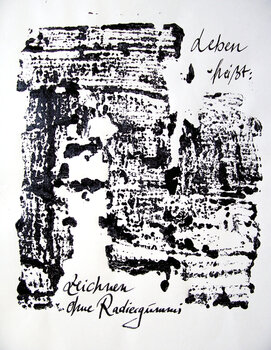 Leben
heißt:
Zeichnen
ohne Radiergummi